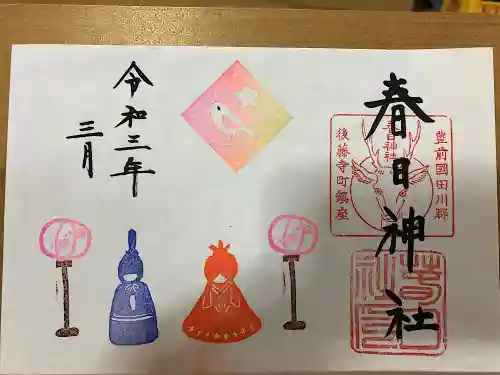 春日神社
豊前國田川郷
春日神社
後藤寺町鎮座
令和三年
三月